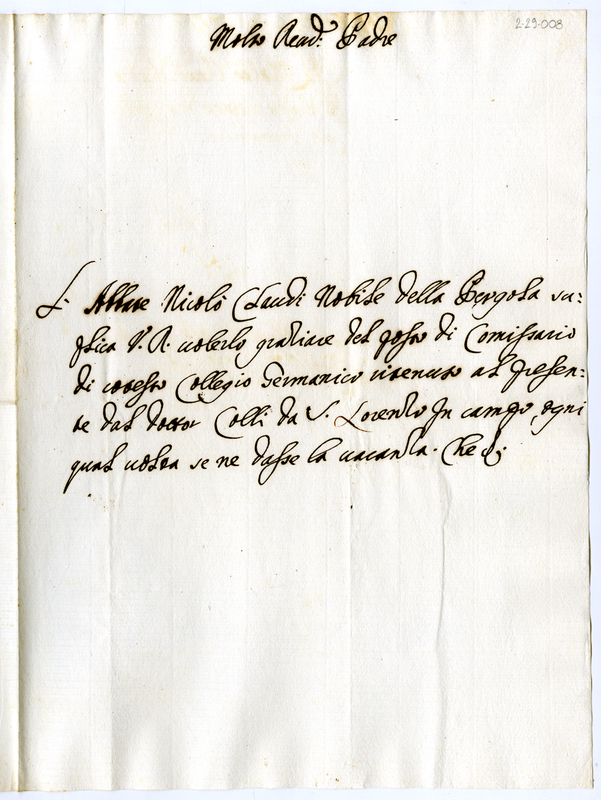 2-29-008
Molto Reud: Padre
L'Abbate Nicolò Claudi Nobile della Pergola su=
plica V. R. uolerlo gratiare del posto di Comissario
di cotesto Collegio Germanico ritenuto al presen=
te dal dottor Colli da S. Lorenzo In campo, ogni
qual uolta se ne dasse la uacanza. Che &;